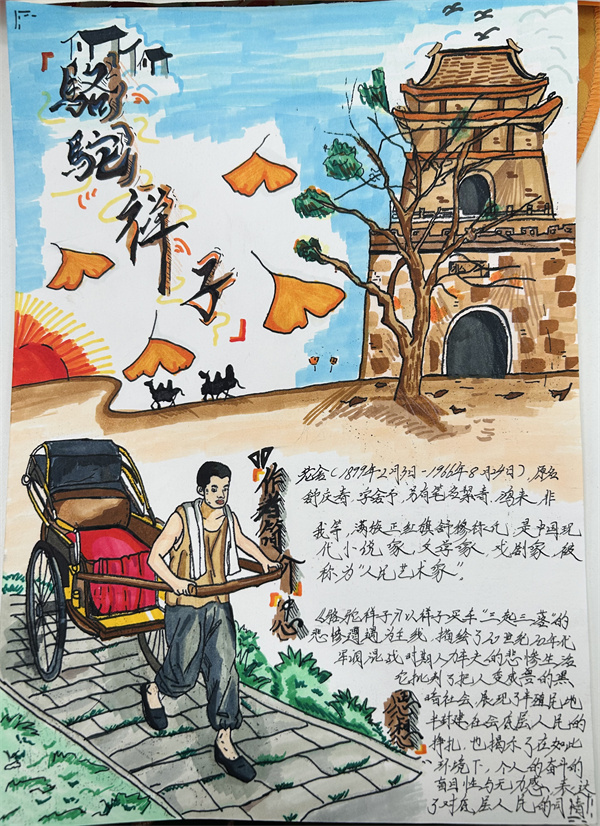 『駱駝祥子』
作者简介
老舍(1899年2月3日-1966年8月24日),原名
舒庆春,字舍予,另有笔名絜青、鸿来、非
我等,满族正红旗舒穆禄氏,是中国现
代小说家、文学家、戏剧家,被
称为“人民艺术家”。
思想
《骆驼祥子》以祥子买车“三起三落”的
悲惨遭遇为主线,描绘了20世纪20年代
军阀混战时期人力车夫的悲惨生活
它批判了把人变成兽的黑
暗社会,展现了半殖民地
半封建社会底层人民的
挣扎,也揭示了在如此
环境下,个人的奋斗的
盲目性与无力感,表达
了对底层人民的同情